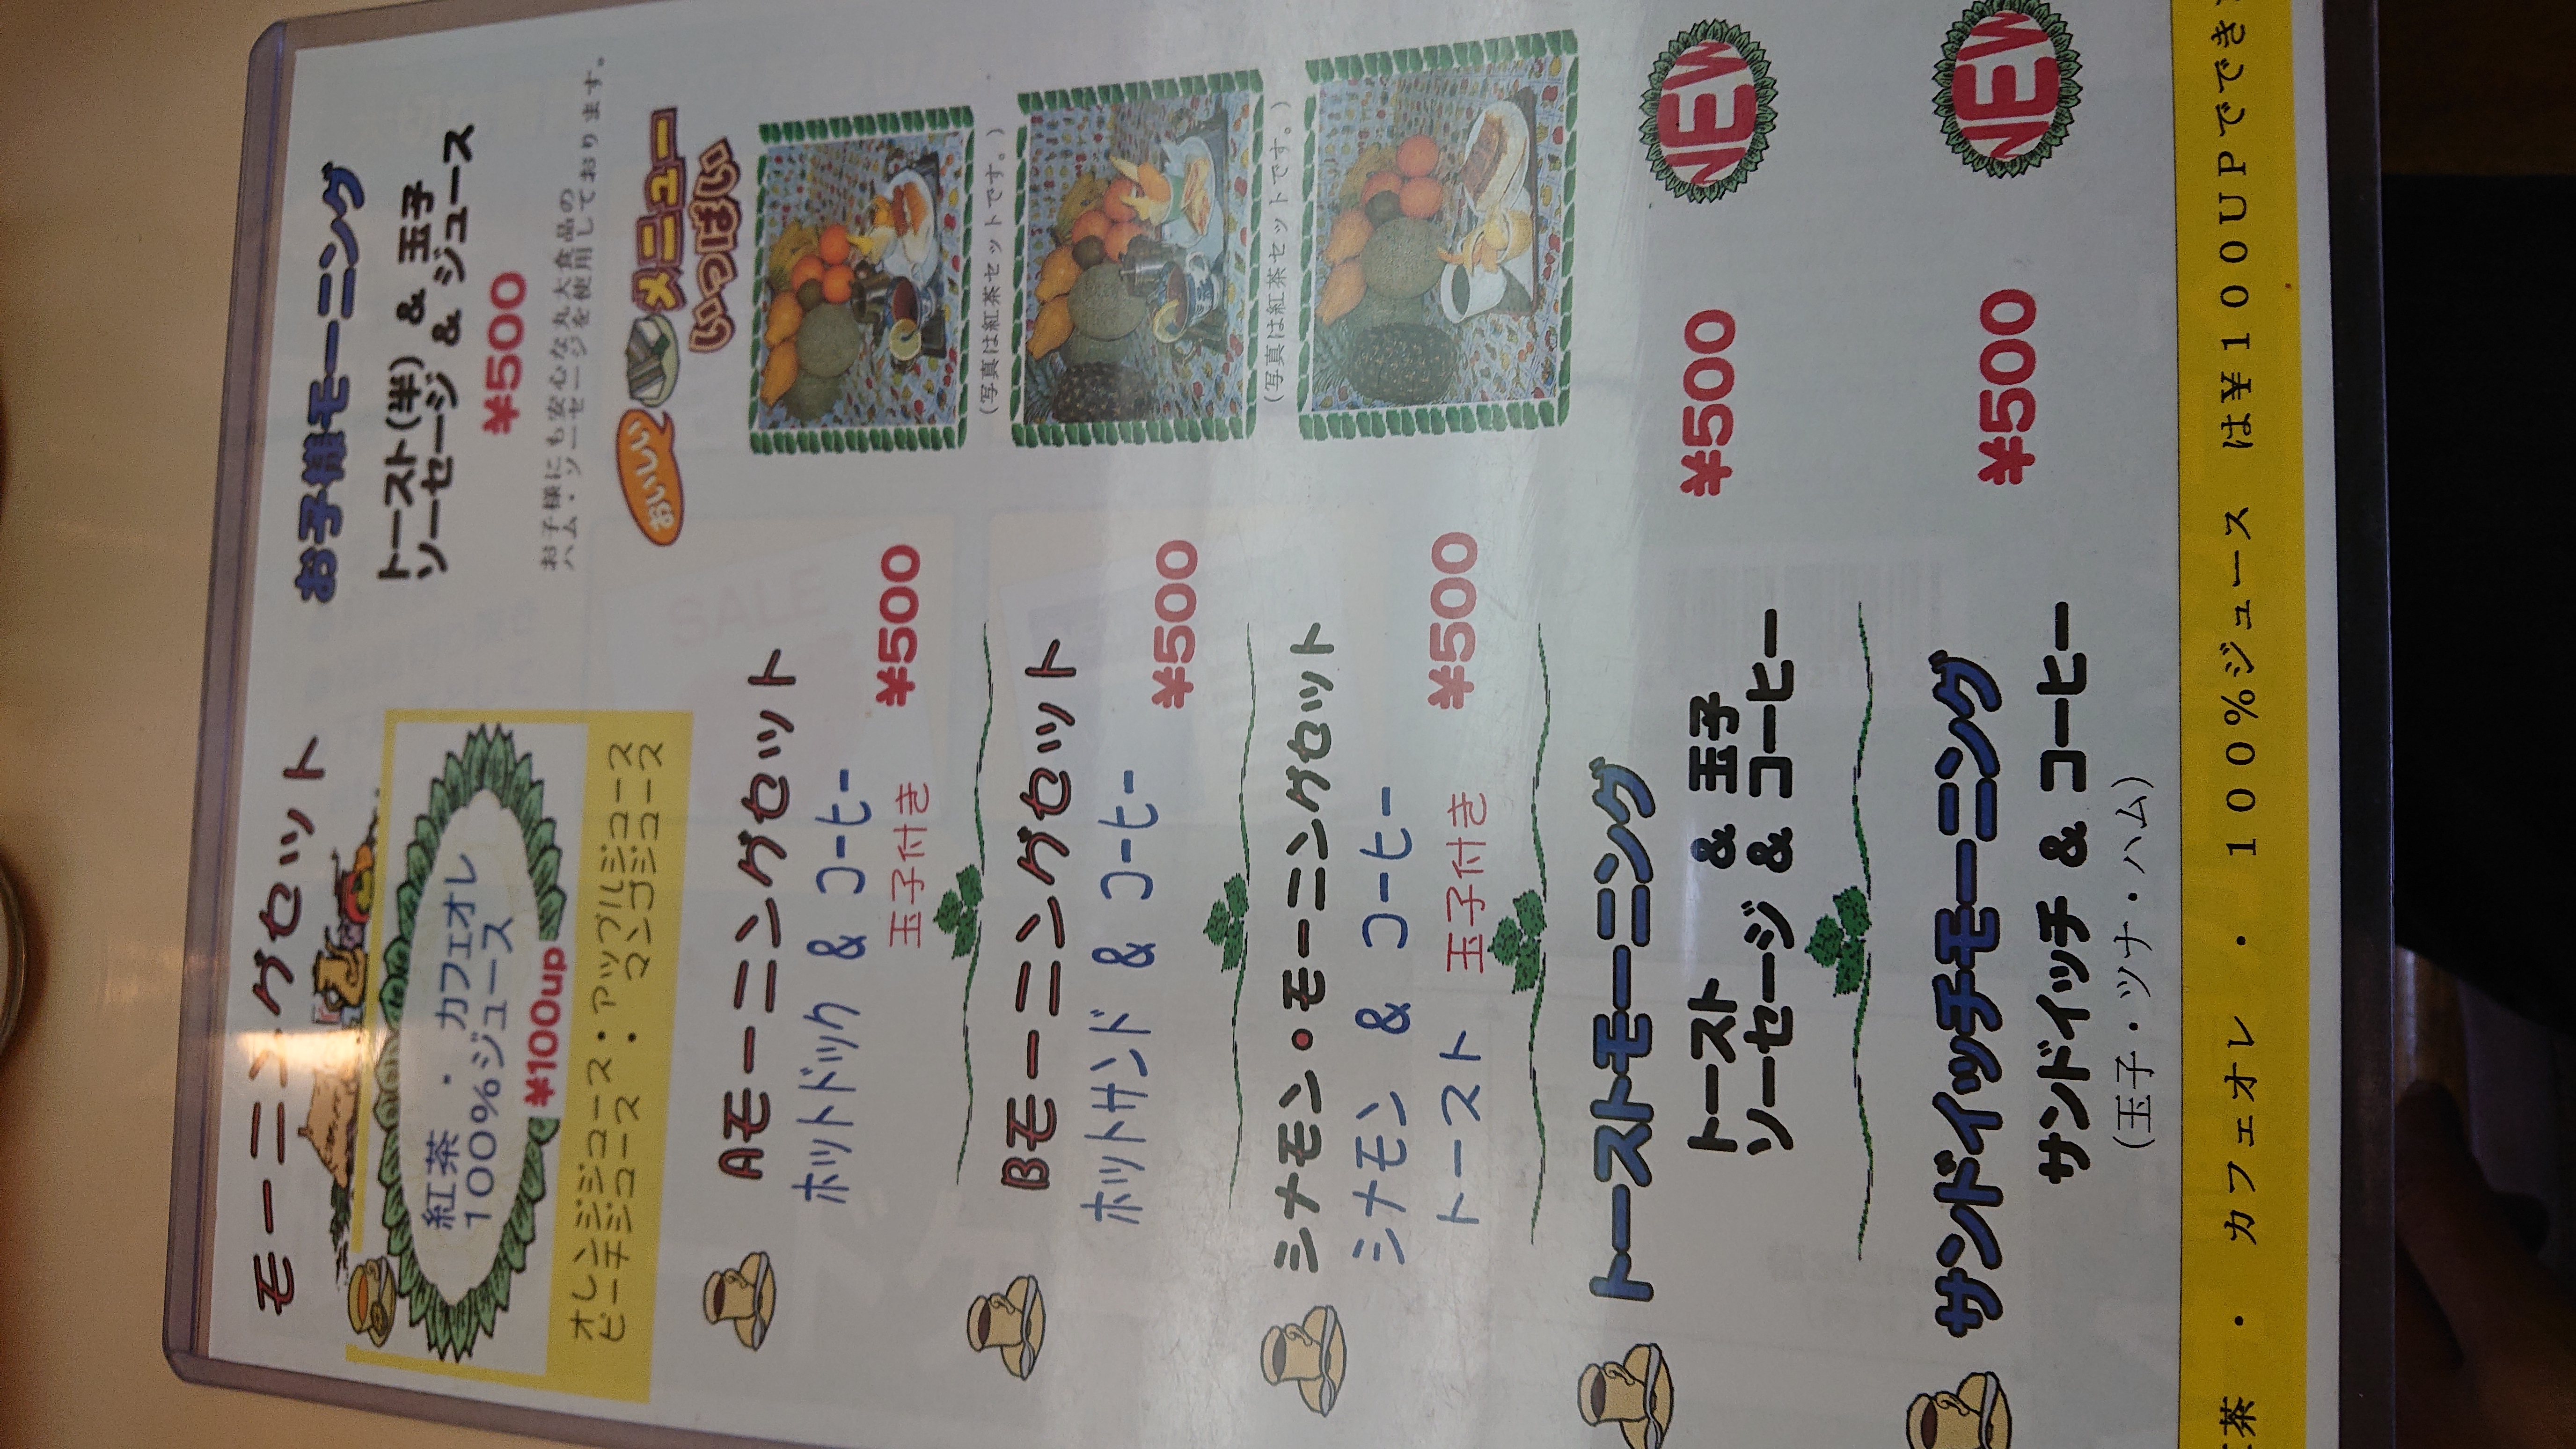 モーニングセット
紅茶 ・ カフェオレ
100%ジュース
¥100up
オレンジジュース・アップルジュース
ピーチジュース ・ マンゴジュース
お子様モーニング
トースト(半) & 玉子
ソーセージ & ジュース
¥500
お子様にも安心な丸大食品の
ハム・ソーセージを使用しております。
おいしい
メニュー
いっぱい
Aモーニングセット
ホットドック & コーヒー
玉子付き
¥500
(写真は紅茶セットです。)
Bモーニングセット
ホットサンド & コーヒー
¥500
(写真は紅茶セットです。)
シナモン・モーニングセット
シナモン & コーヒー
トースト 玉子付き
¥500
トーストモーニング
トースト & 玉子
ソーセージ & コーヒー
¥500
NEW
サンドイッチモーニング
サンドイッチ & コーヒー
(玉子・ツナ・ハム)
¥500
NEW
紅茶 ・ カフェオレ ・ 100%ジュース は¥100UPででき